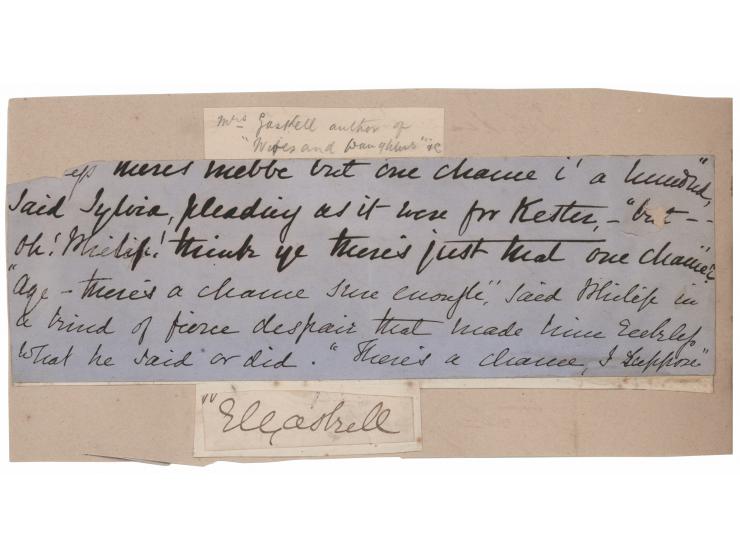 Mrs Gaskell author of
"Wives and Daughters" &c
theres mebbe but one chance i' a hundred",
Said Sylvia, pleading as it were for Kester, – "but – –
Oh! Philip! think ye there's just that one chance?"
"Aye – there's a chance sure enough", said Philip in
a kind of fierce despair that made him reckless
what he said or did. "There's a chance, I suppose"
"E C Gaskell